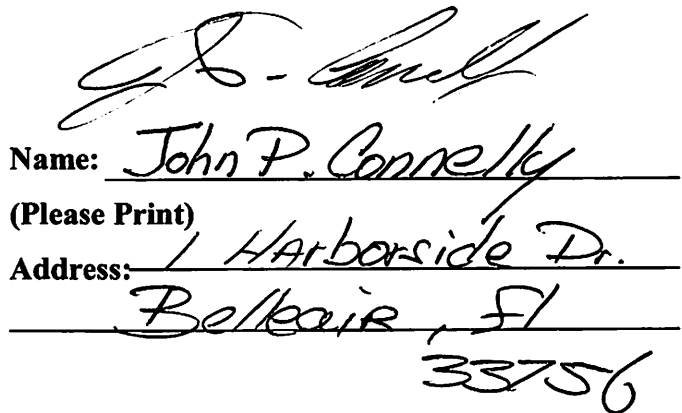 Name: John P. Connelly
(Please Print)
Address: 1 HArborside Dr.
Belleair, Fl
33756